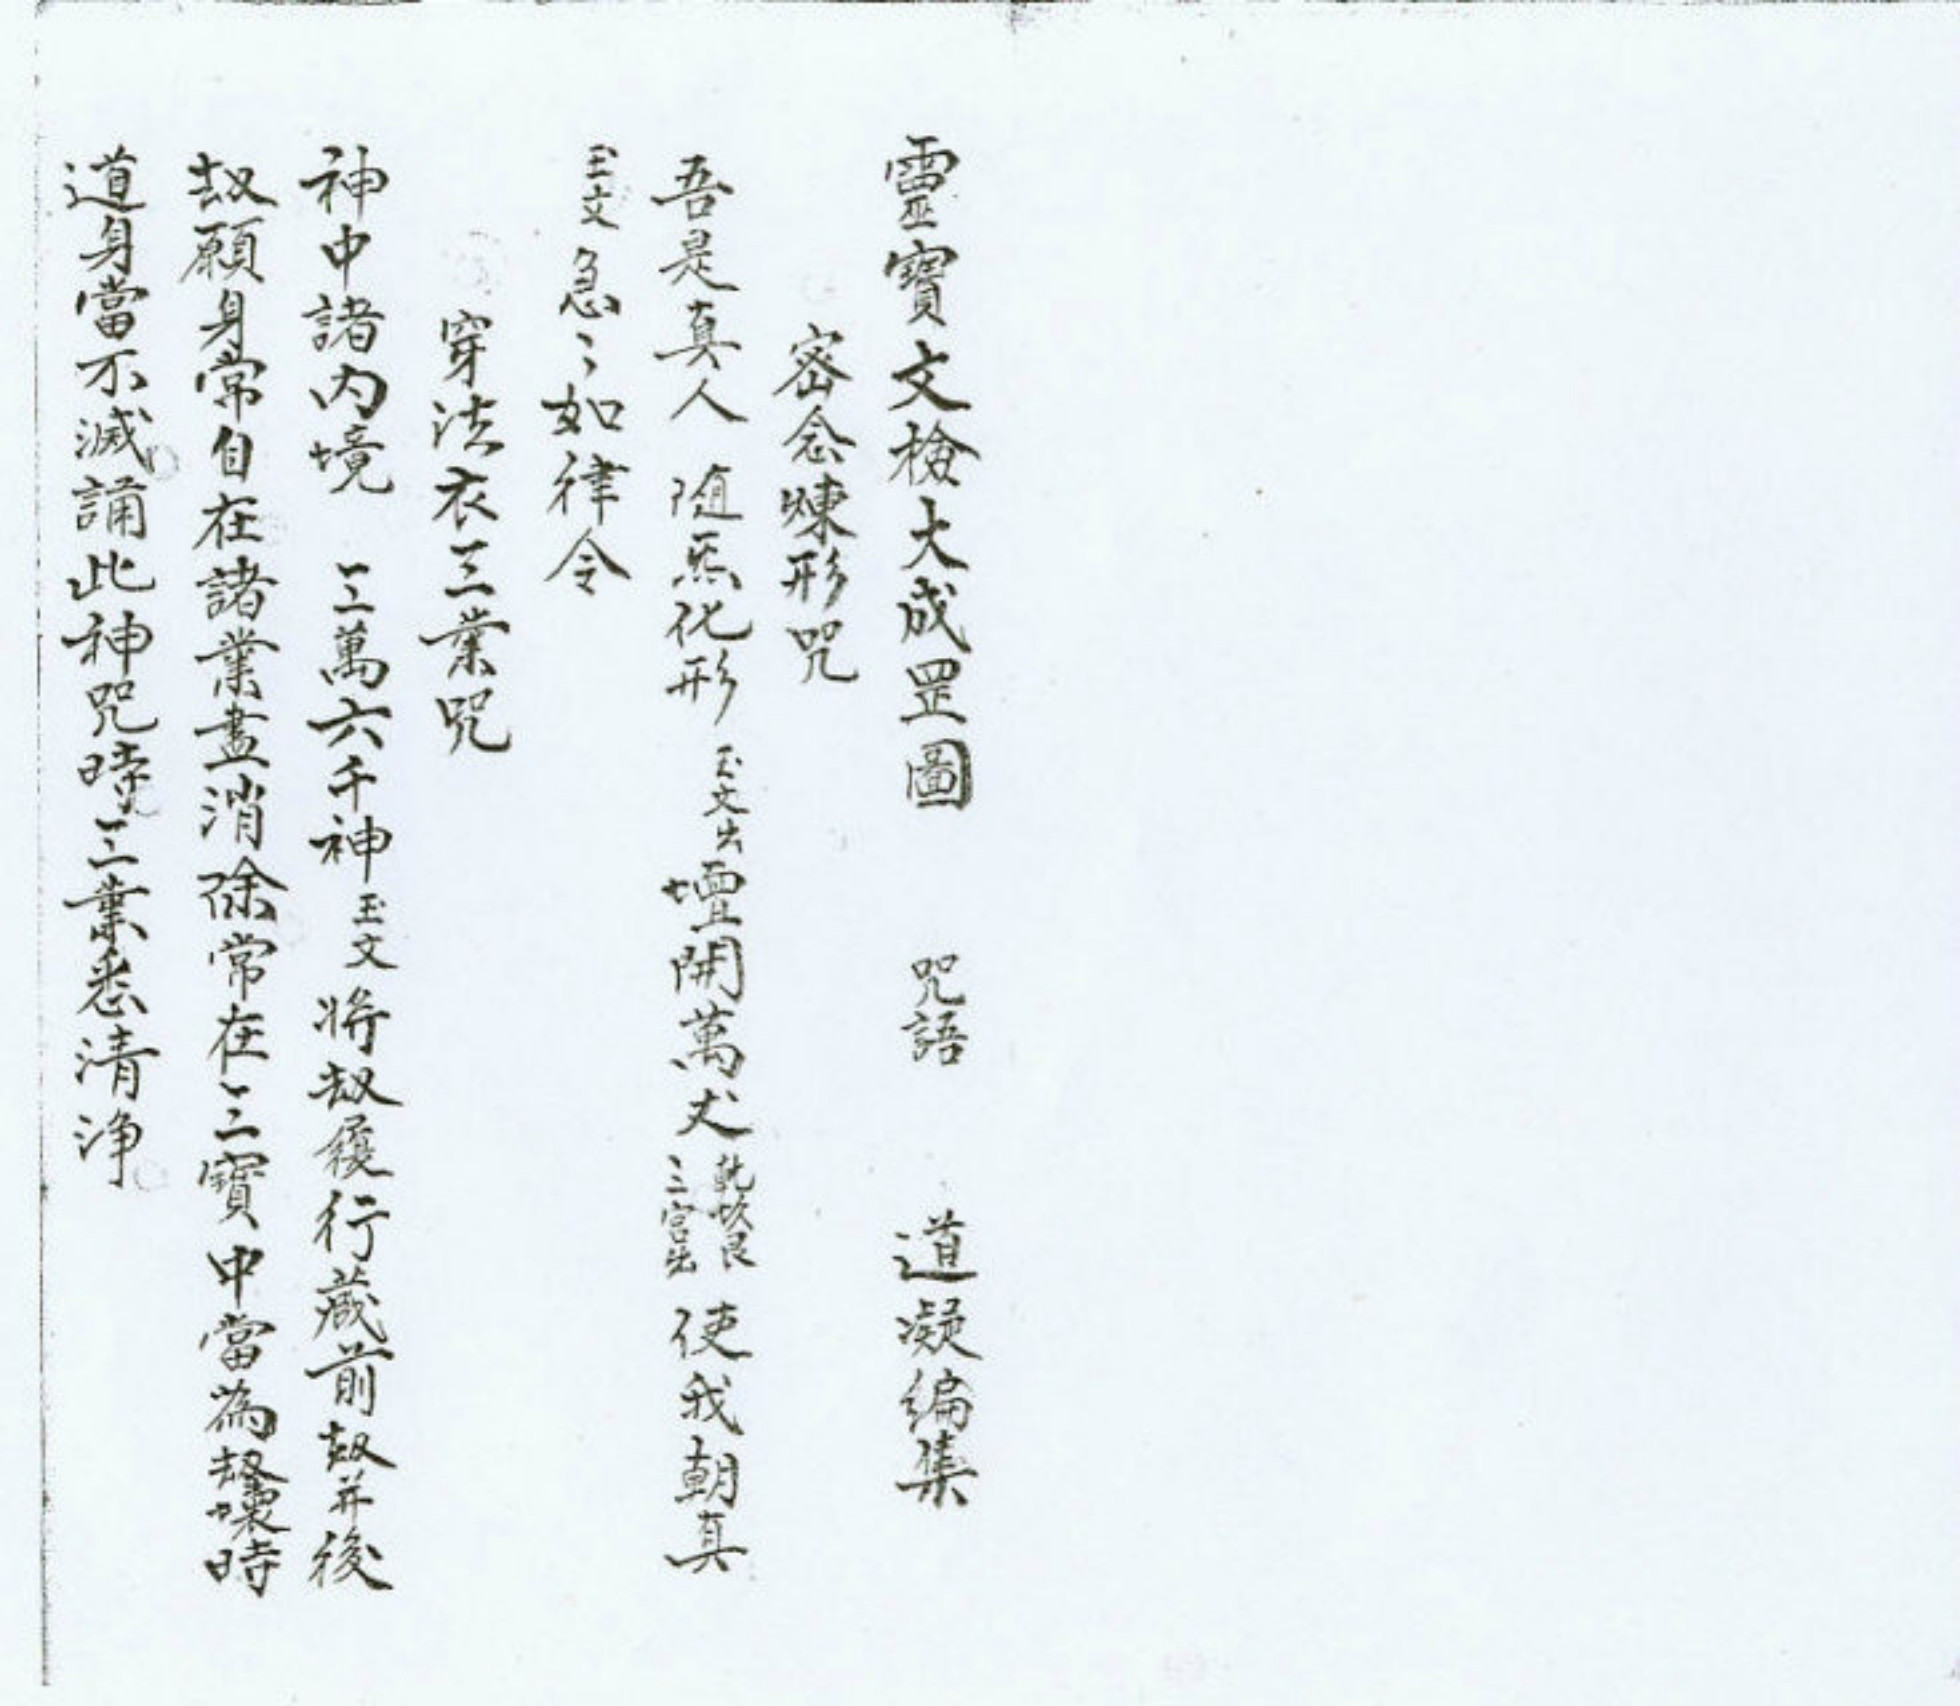 靈寶文檢大成罡圖 咒語 道凝編集
密念煉形咒
吾是真人 随炁化形 玉文出壇開萬犬 乾坎艮三宮出 使我朝真
玉文急〻如律令
穿法衣三業咒
神中諸内境 三萬六千神玉文将刼履行藏前刼并後
刼願身常自在諸業盡消除常在三寶中當為刼壞時
道身當不滅誦此神咒時三業悉清浄